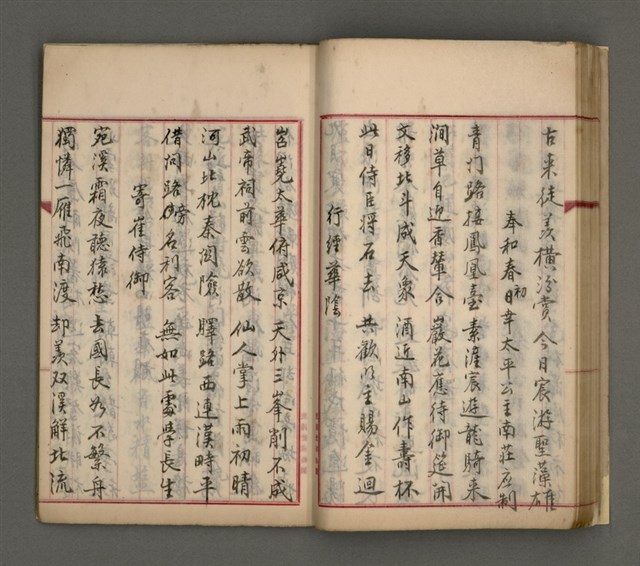 古来徒羡橫汾赏今日宸游聖藻雄
奉和春初日幸太平公主南莊应制
青门路接鳳凰臺素滻宸遊龍騎来
澗草自迎香輦合巖花應待御筵開
文移北斗成天象酒近南山作壽杯
此日侍臣将石去共歡明主賜金迴
行經華陰
岧嶤太華俯咸京天外三峯削不成
武帝祠前雲欲散仙人掌上雨初晴
河山北枕秦関險驛路西連漢畤平
借问路傍名利客無如此處學長生
寄崔侍御
宛溪霜夜聽猿愁去國長如不繫舟
獨憐一雁飛南渡却羡双溪解北流